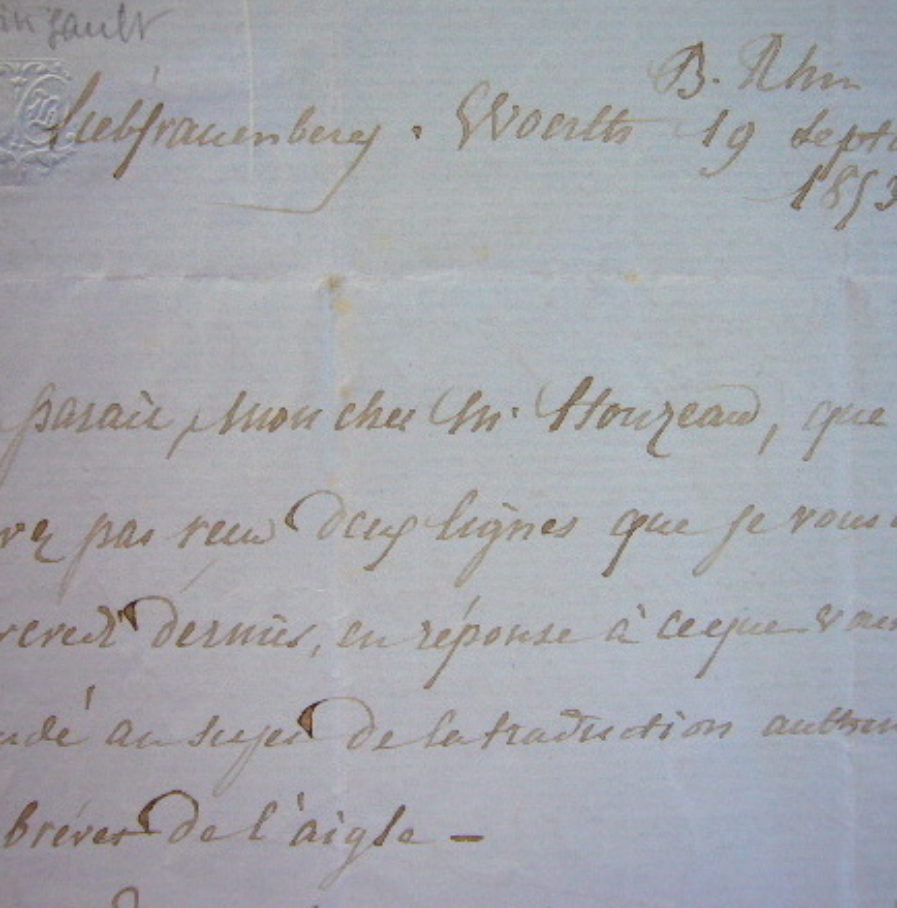 B. Rhin
Liebfrauenberg. Woerth 19 Sept
1853
parait, mon cher Mr. Houzeau, que
vez pas reçu deux lignes que je vous
credi dernier, en réponse à ce que vous
ndé au sujet de la traduction
brevet de l'aigle -